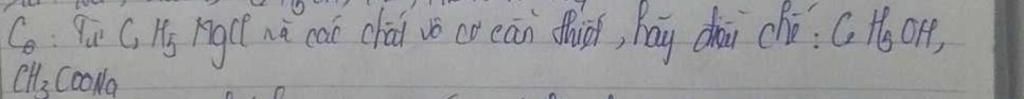 C₈: Từ C₂H₅MgCl và các chất vô cơ cần thiết, hãy điều chế: C₂H₅OH,
CH₃COONa